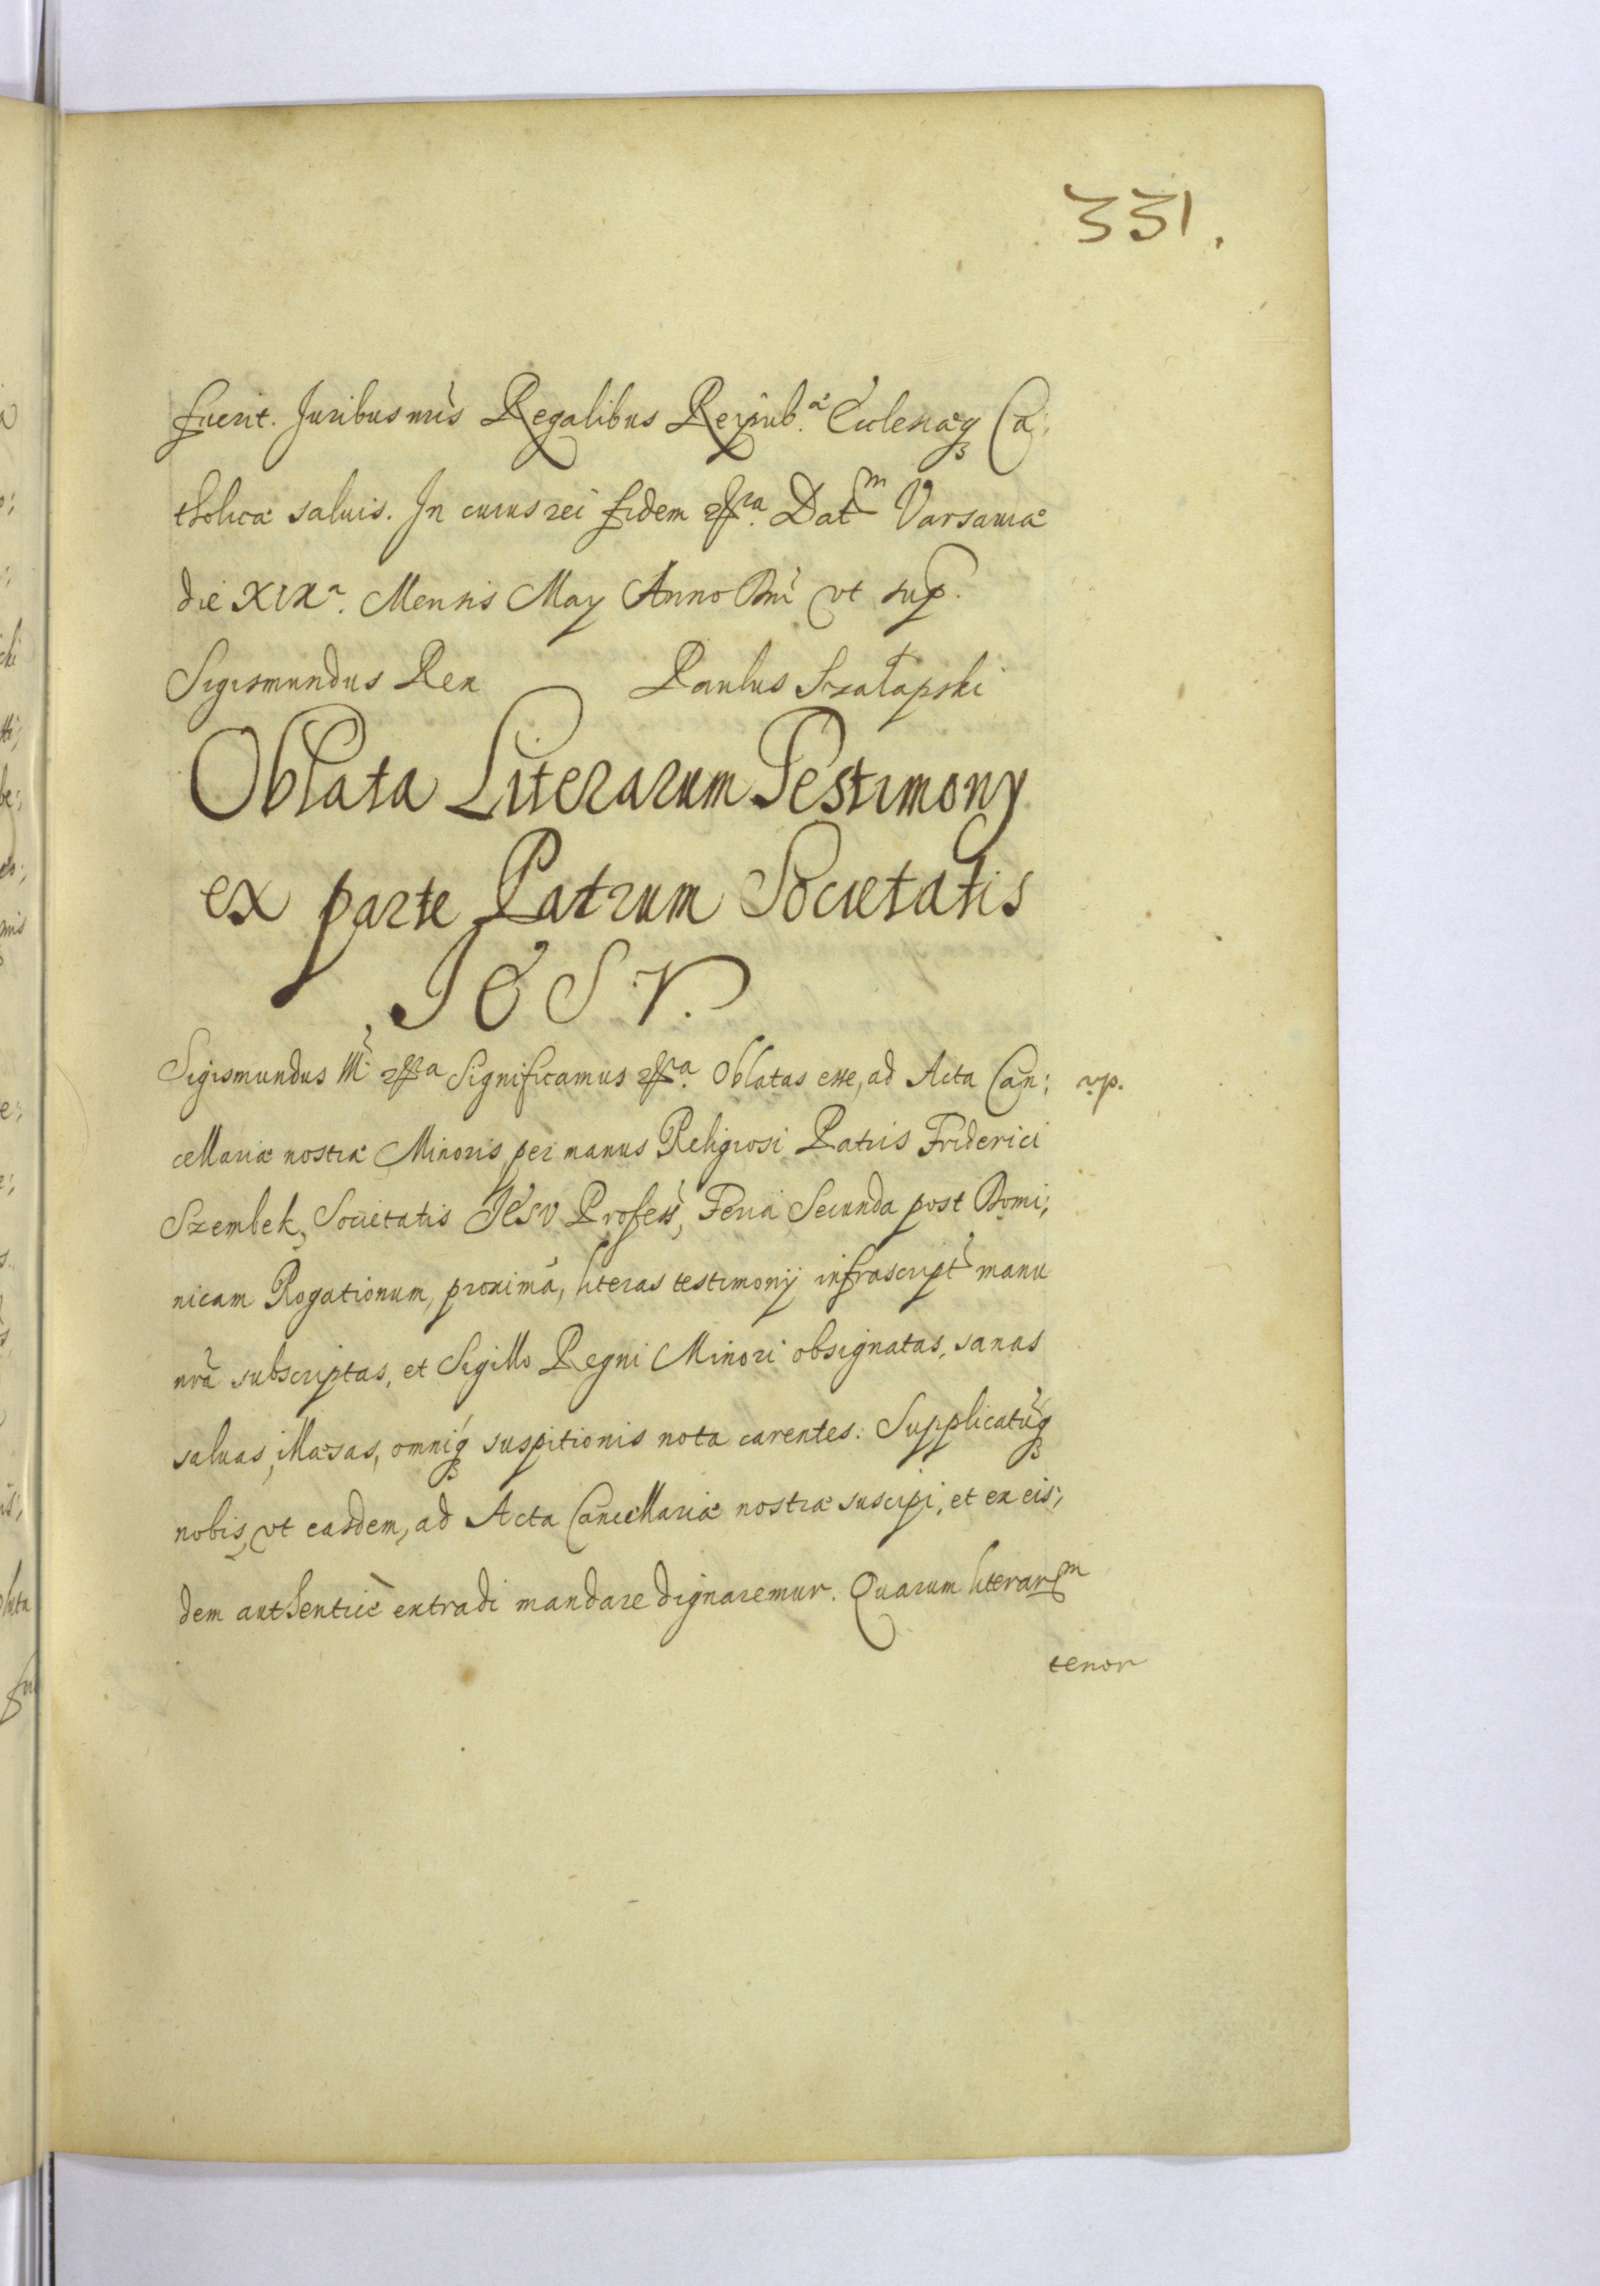 331.
fuerit. Juribus nr̃is Regalibus Reipub.æ Ecclesiæq3 Ca:
tholicæ saluis. In cuius rei fidem &ra. Datm Varsauiæ
die XIXa. Mensis May Anno Dni ut sup.
Sigismundus Rex Paulus Szałapski
Oblata Literarum Testimony
ex parte Patrum Societatis
JESV.
Sigismundus III &ra Significamus &ra. Oblatas esse, ad Acta Can:
cellariæ nostræ Minoris per manus Religiosi Patris Friderici
Szembek, Societatis JESV Profess, Feria Secunda post Domi;
nicam Rogationum, proximá, literas testimonij infrascript manu
nr̃a subscriptas, et Sigillo Regni Minori obsignatas, sanas
saluas, illæsas, omniq3 suspitionis nota carentes. Supplicatũq3
nobis, vt easdem, ad Acta Cancellariæ nostræ suscipi, et ex eis;
dem authenticè extradi mandare dignaremur. Quarum literarm
tenor